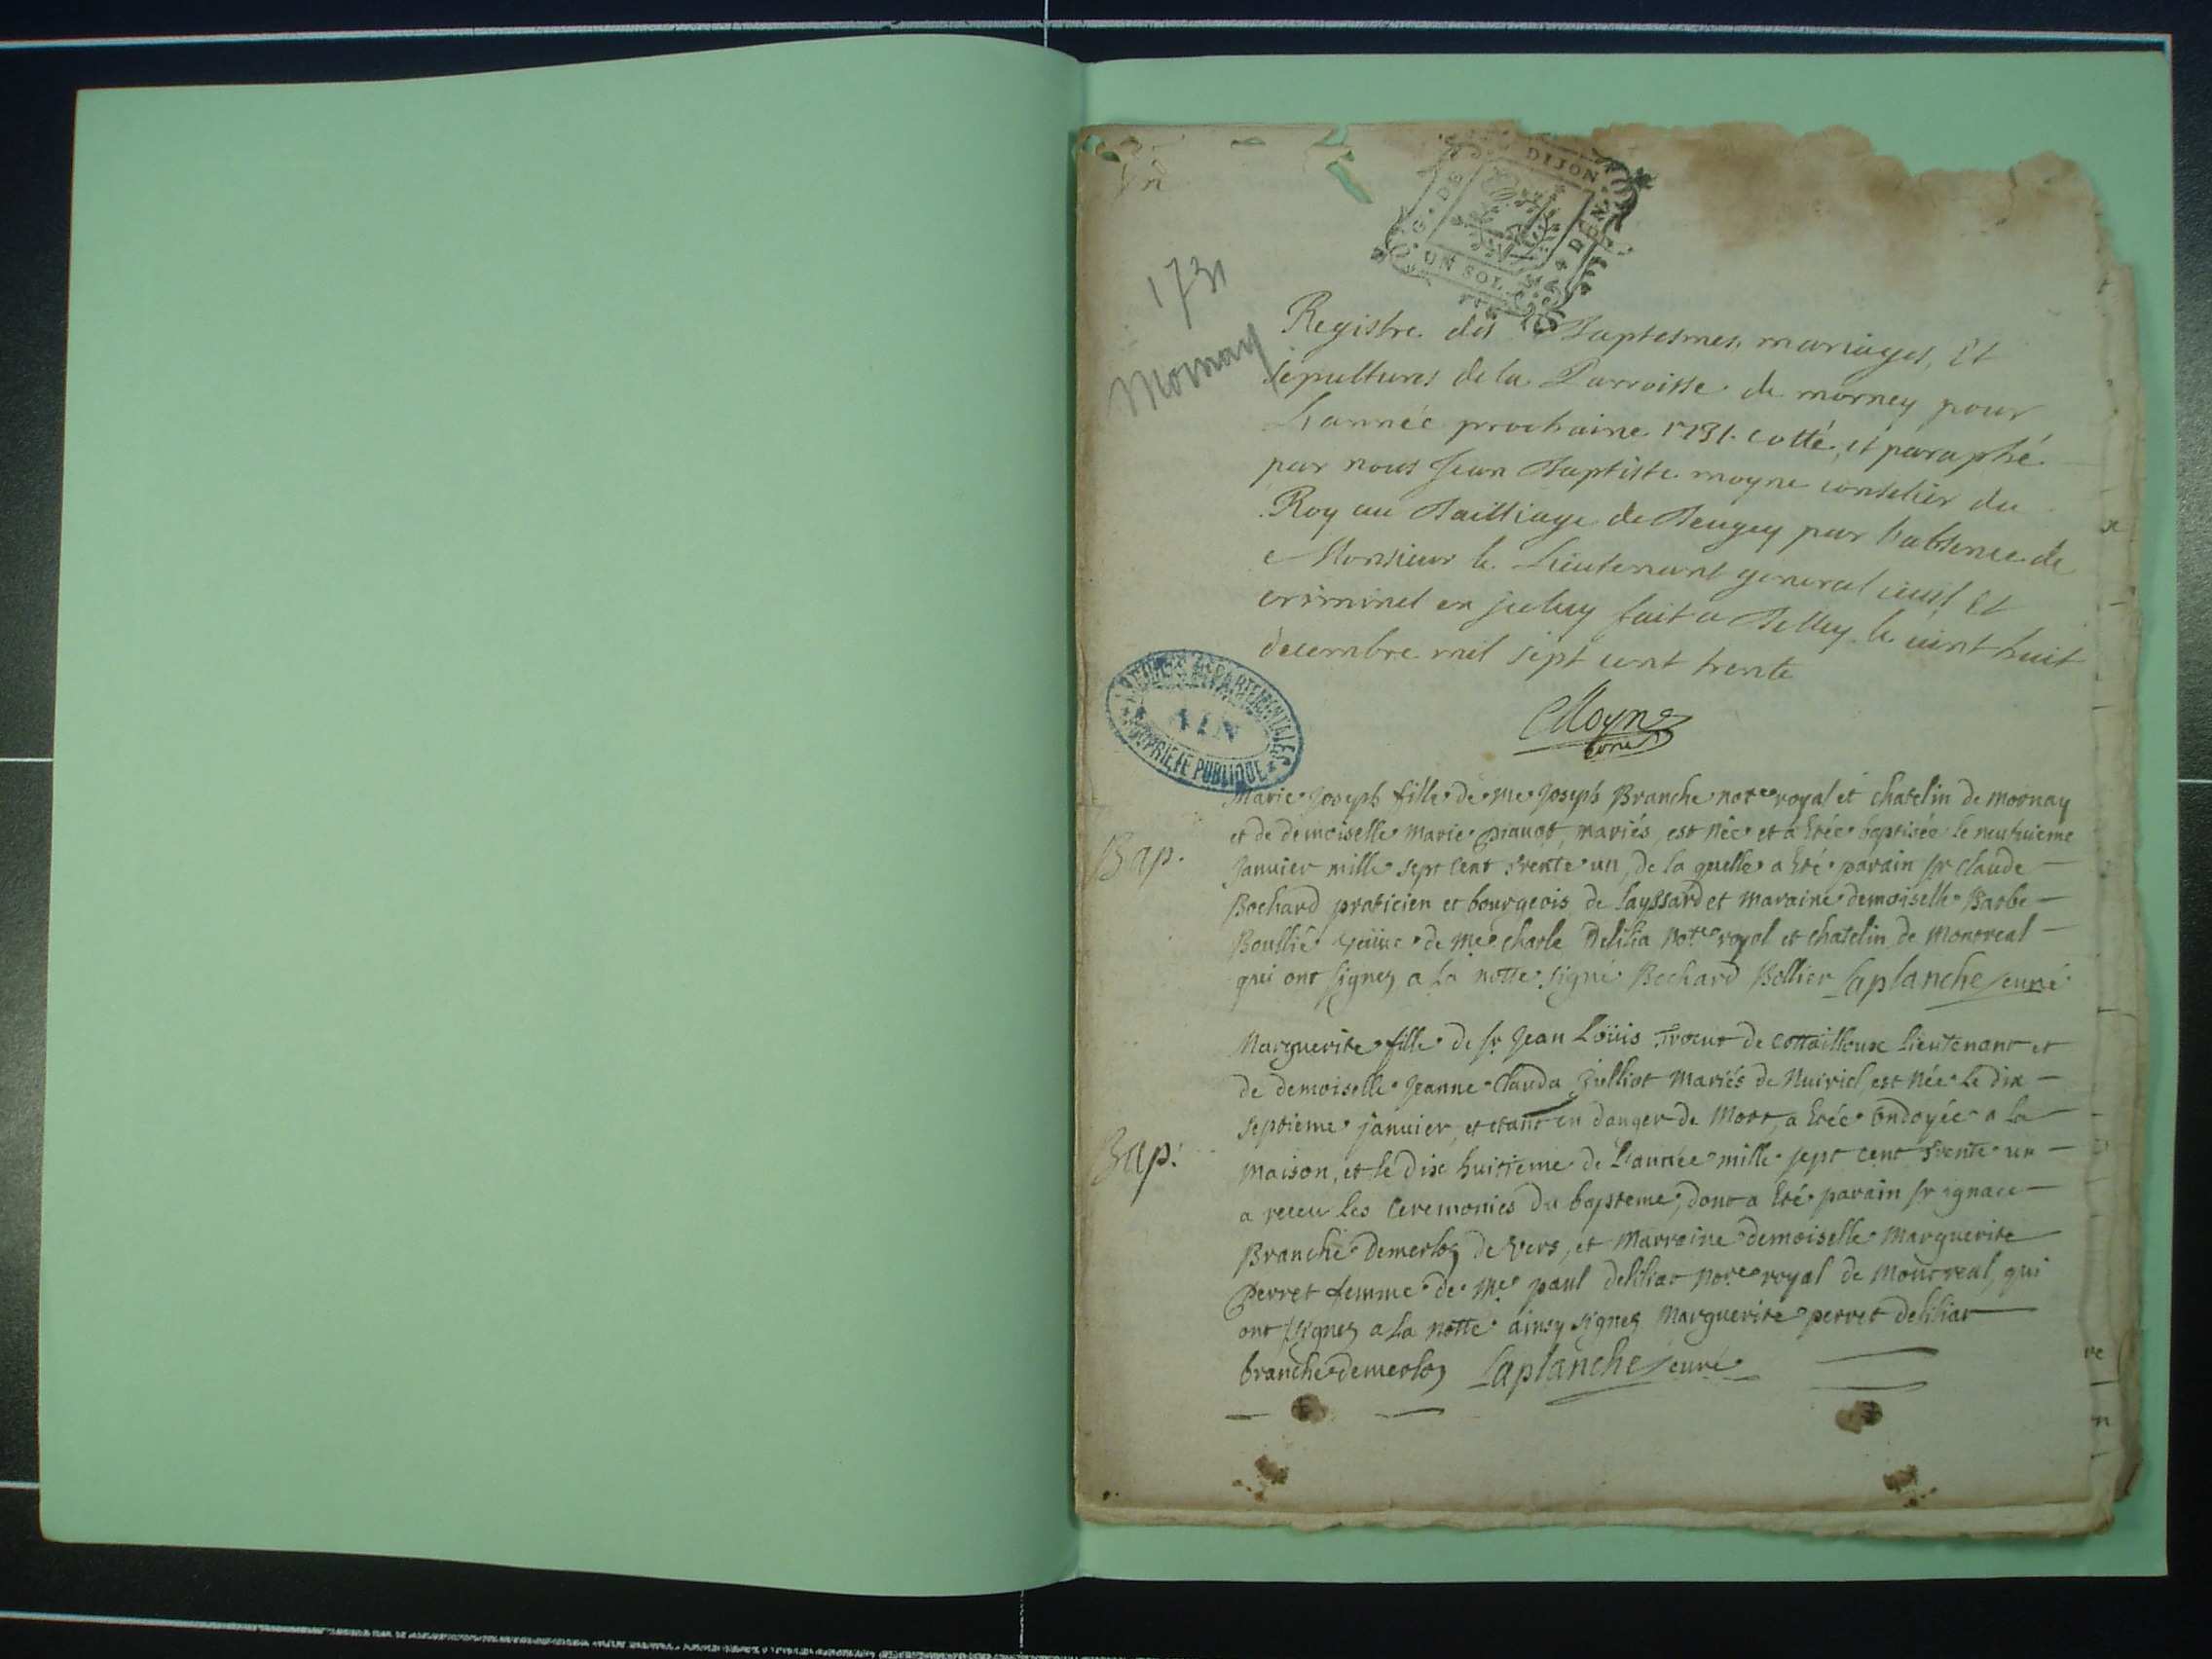 1731
Mornay
G. DE DIJON
UN SOL
Registre des Baptesmes, mariages, Et
sepultures de la Parroisse de morney pour
L'année prochaine 1731. cotté, et paraphé
par nous Jean Baptiste moyne conselier du
Roy au Bailliage de Beugey par l'absence de
Monsieur le Lieutenant general civil Et
criminel en jceluy fait a Belley le vint huit
decembre mil sept cent trente
Moyne
ARCHIVES DEPARTEMENTALES
AIN
PROPRIETE PUBLIQUE
Bap.
Marie joseph fille de me joseph Branche notre royal et chatelin de mornay
et de demoiselle marie mariés, est née et a Etée baptisée le neufuieme
janvier mille sept cent trente un, de la quelle a Eté parain sr claude
Bochard praticien et bourgeois de layssard et maraine demoiselle Barbe
Boullié veüue de me charle Delilia notre royal et chatelin de Montreal
qui ont signez a la notte signé Bochard Bollier Laplanche curé
Bap.
Marguerite fille de sr jean Loüis de cottailloux Lieutenant et
de demoiselle jeanne Clauda julliot mariés de est née le dix
septieme janvier, et etant en danger de Mort, a Etée ondoyée a la
maison, et le dix huitieme de L'année mille sept cent trente un
a receu les ceremonies du bapteme, dont a Eté parain sr ignace
Branche demerloz de vers, et Marraine demoiselle Marguerite
Perret femme de me paul deliliat notre royal de Montreal, qui
ont signez a la notte ainsy signez Marguerite perret deliliat
branche demerloz Laplanche curé